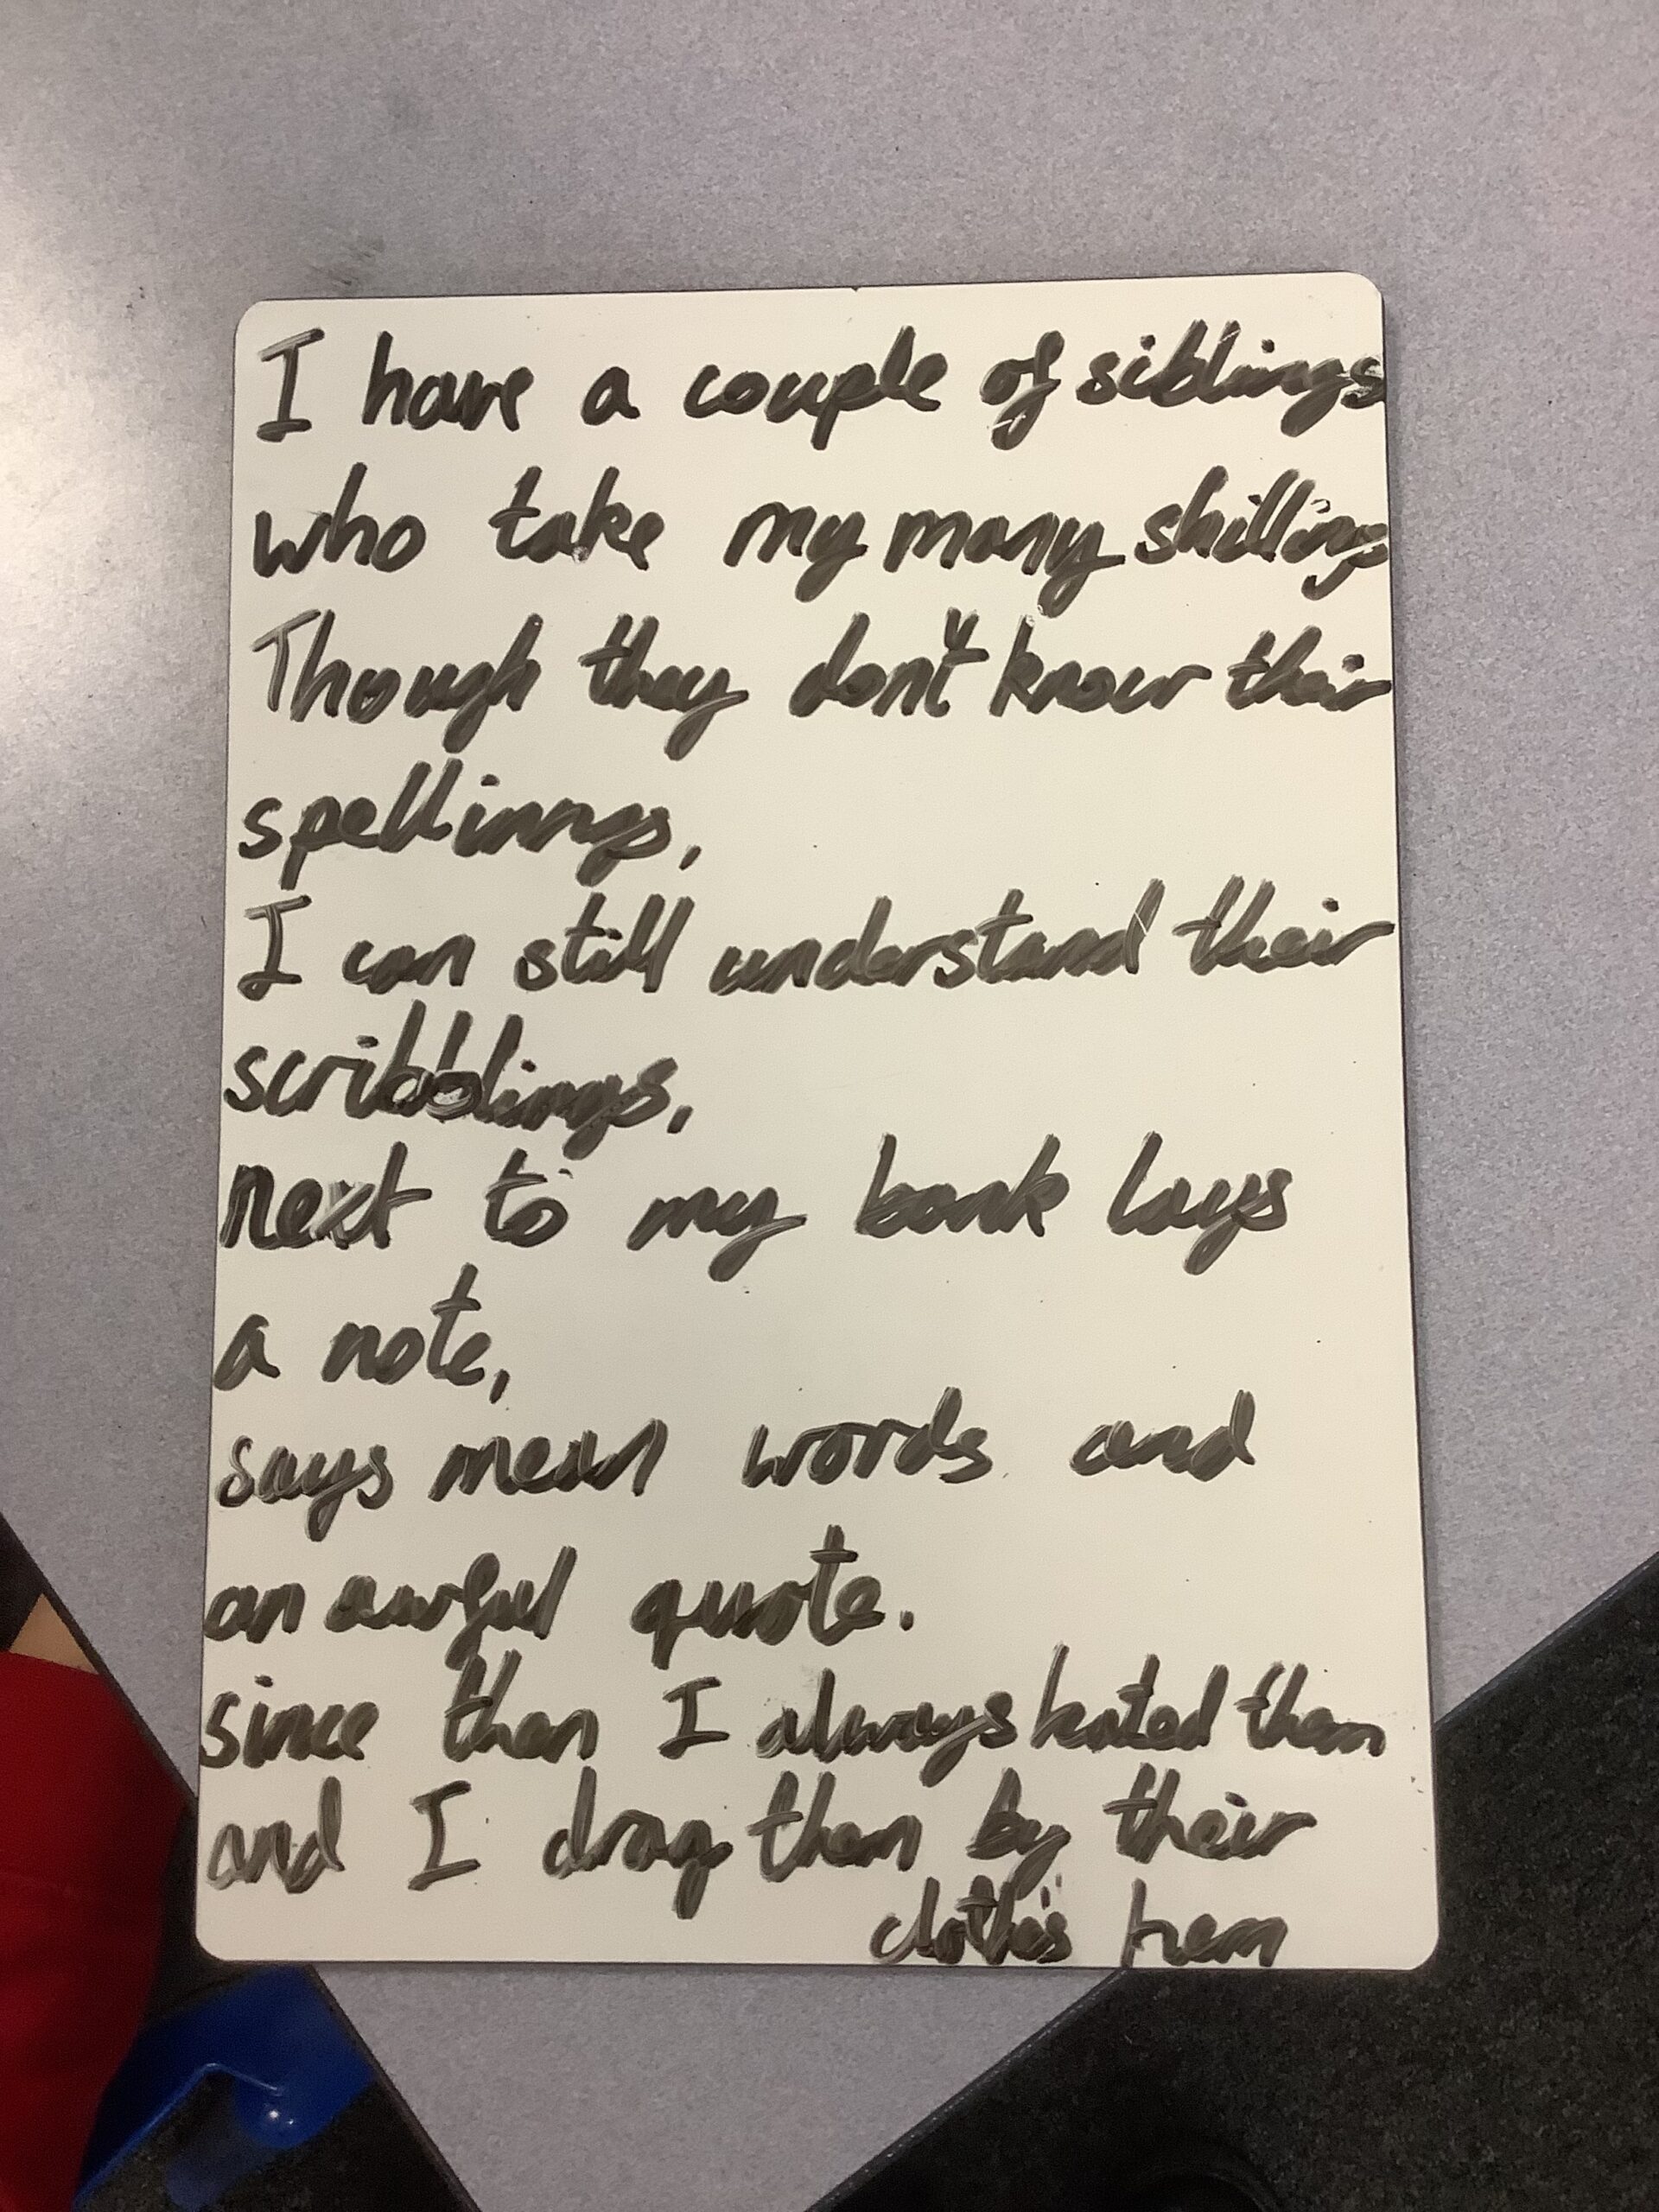 I have a couple of siblings
who take my many shillings
Though they don't know their
spellings,
I can still understand their
scribblings,
next to my bank lays
a note,
says mean words and
an awful quote.
since then I always hated them
and I drag them by their
clothes hem